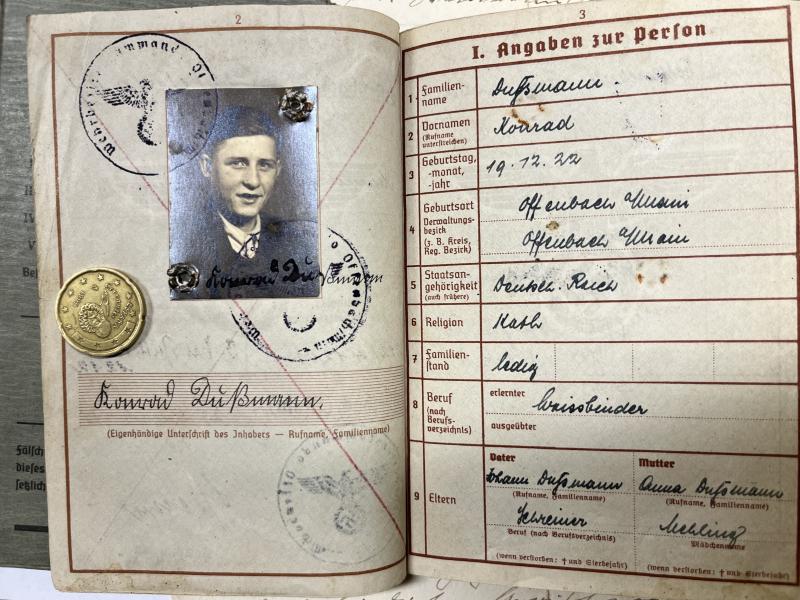 2
Konrad Dußmann
Konrad Dußmann.
(Eigenhändige Unterschrift des Inhabers — Rufname, Familienname)
Fälsch
dieses
setzlich
3
I. Angaben zur Person
1 Familien-
name
Dußmann
2 Vornamen
(Rufname
unterstreichen)
Konrad
3 Geburtstag,
-monat,
-jahr
19.12.22
4 Geburtsort
Verwaltungs-
bezirk
(z. B. Kreis,
Reg. Bezirk)
Offenbach a/Main
Offenbach a/Main
5 Staatsan-
gehörigkeit
(auch frühere)
Deutsch. Reich
6 Religion
Kath
7 Familien-
stand
ledig
8 Beruf
(nach
Berufs-
verzeichnis)
erlernter
Weissbinder
ausgeübter
9 Eltern
Vater
Johann Dußmann
(Rufname, Familienname)
Schreiner
Beruf (nach Berufsverzeichnis)
(wenn verstorben: † und Sterbejahr)
Mutter
Anna Dußmann
(Rufname, Familienname)
Mehling
Mädchenname
(wenn verstorben: † und Sterbejahr)